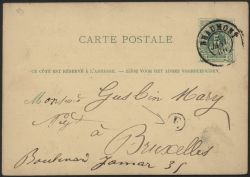 BEAUMONT
CARTE POSTALE
CE CÔTÉ EST RÉSERVÉ À L'ADRESSE. — ZIJDE VOOR HET ADRES VOORBEHOUDEN.
Monsieur Mary
à
Bruxelles
Boulevard Jamar 35